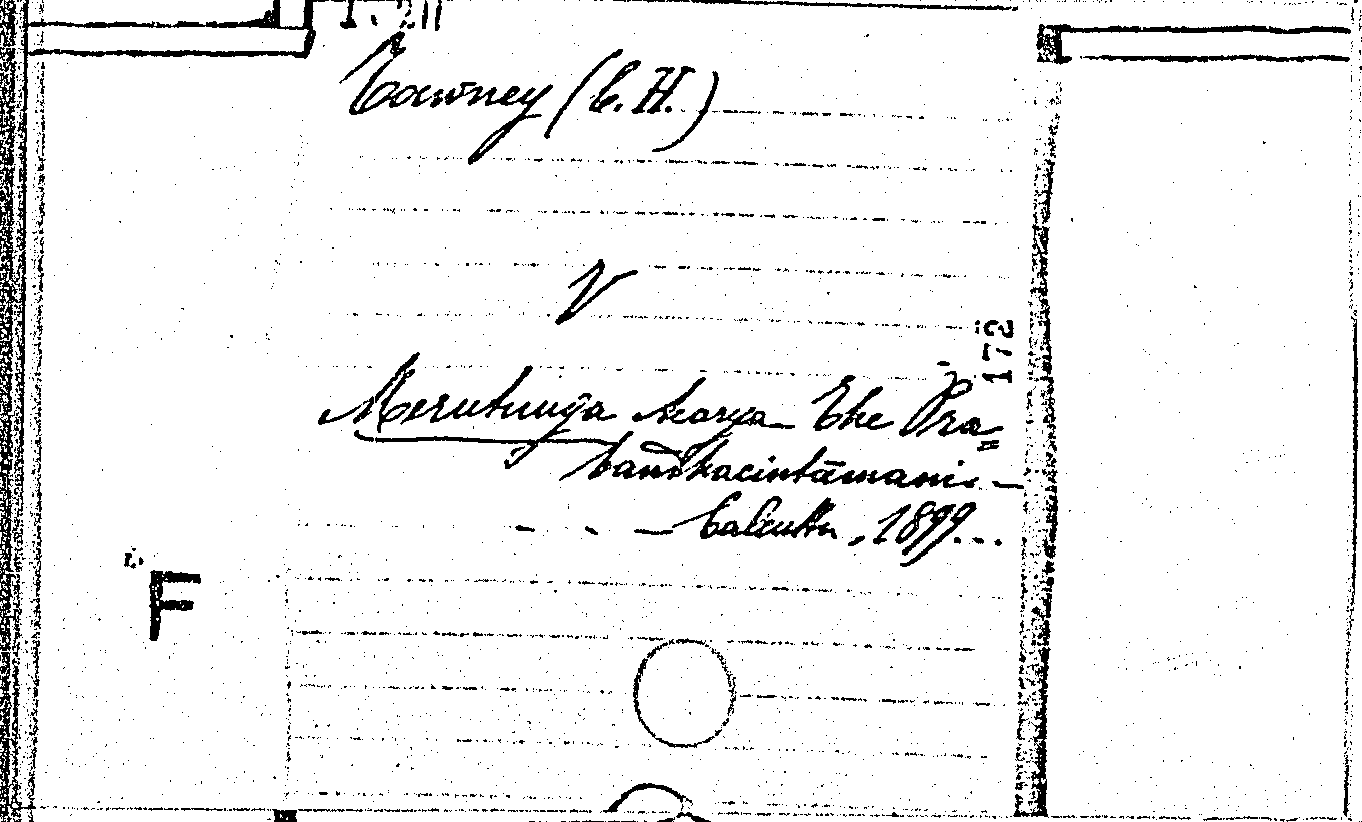 Tawney (C. H.)
V
172
Merutunga Acarya - The Pra=
bandhacintāmani. -
- - - Calcutta, 1899...
F